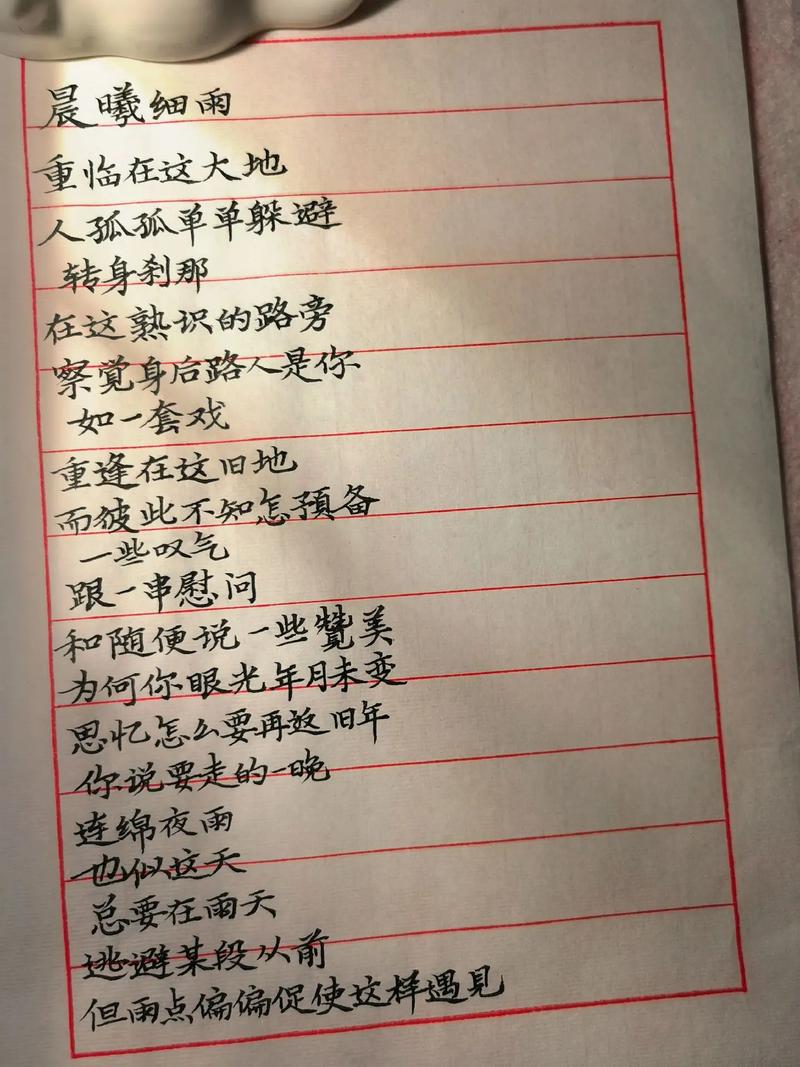 晨曦细雨
重临在这大地
人孤孤单单躲避
转身刹那
在这熟识的路旁
察觉身后路人是你
如一套戏
重逢在这旧地
而彼此不知怎預备
一些叹气
跟一串慰问
和随便说一些贊美
为何你眼光年月未变
思忆怎么要再返旧年
你说要走的一晚
连绵夜雨
也似这天
总要在雨天
逃避某段从前
但雨点偏偏促使这样遇見